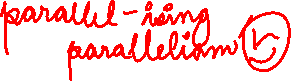 parallel-ising
parallelism